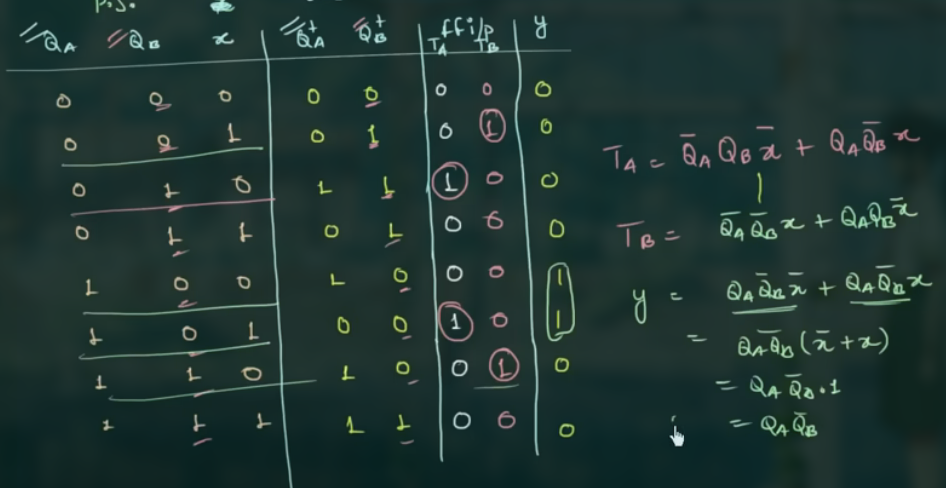 P.S.
Q_A Q_B x Q_A^+ Q_B^+ ff i/p T_A T_B y
0 0 0 0 0 0 0 0
0 0 1 0 1 0 1 0
0 1 0 1 1 1 0 0
0 1 1 0 1 0 0 0
1 0 0 1 0 0 0 1
1 0 1 0 0 1 0 1
1 1 0 1 0 0 1 0
1 1 1 1 1 0 0 0
T_A = Q̄_A Q_B x̄ + Q_A Q̄_B x
T_B = Q̄_A Q̄_B x + Q_A Q_B x̄
y = Q_A Q̄_B x̄ + Q_A Q̄_B x
= Q_A Q̄_B (x̄ + x)
= Q_A Q̄_B · 1
= Q_A Q̄_B